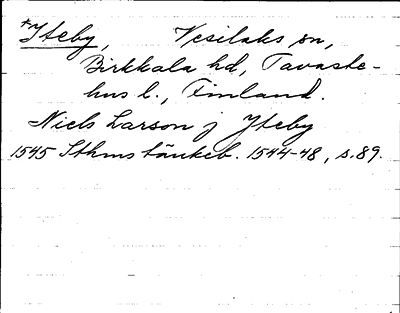 *Yteby, Vesilaks sn,
Birkkala hd, Tavaste-
hus l., Finland.
Niels Larson j Yteby
1545 Sthms tänkeb. 1544-48, s.89.